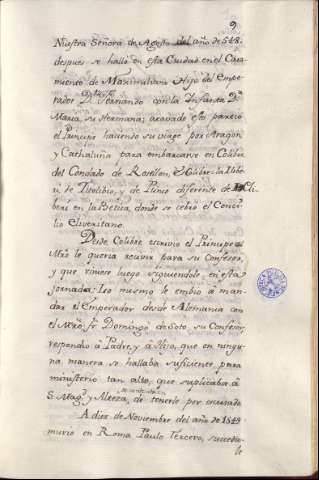 9
Nuestra Señora de Agosto del año de 548.
despues se halló en esta Ciudad en el Casa
miento de Maximiliano Hijo del Empe
rador D. Fernando con la Infanta D.ª
Maria, su Hermana; acavado esto pareció
el Principe haciendo su viage por Aragon
y Cathaluña para embarcarse en Colibre
del Condado de Rosellon, Helibre, la Iliberi
de Titolibio, y de Plinio diferente de Ili
beri en la Betica, donde se celebró el Conci
lio Eliveritano.
Desde Colibre escrivio el Principe al
Mrô le queria recivir para su Confesor,
y que viniese luego siguiendole, en esta
jornada; Lo mesmo le embio à man
dar el Emperador desde Alemania con
el Mrô. fr. Domingo de Soto, su Confesor,
respondio à Padre, y à Hijo, que en ningu
na manera se hallaba suficiente para
ministerio tan alto, que suplicaba à
S. Mag.d y Alteza, de tenerle por escusado
A diez de Noviembre del año de 1549
murio en Roma Paulo Tercero, succedio
le